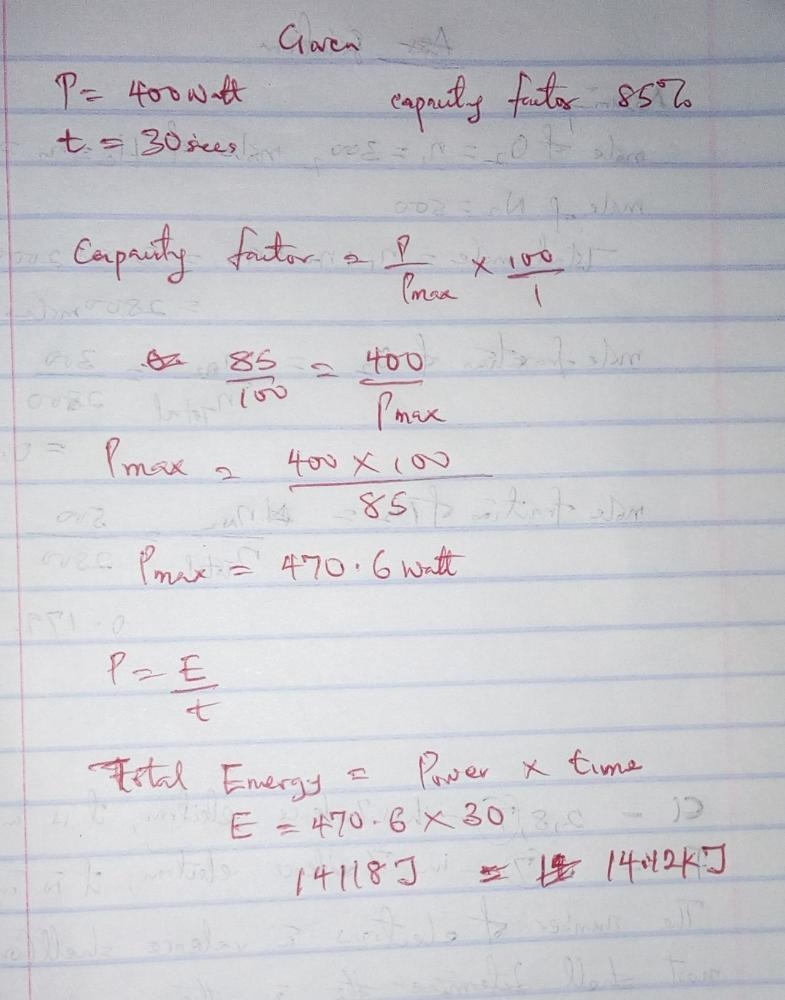 Given
P = 400 watt capacity factor 85%
t = 30 secs
Capacity factor = P/Pmax × 100/1
85/100 = 400/Pmax
Pmax = 400 × 100/85
Pmax = 470.6 watt
P = E/t
Total Energy = Power × time
E = 470.6 × 30
14118 J = 14.12 KJ